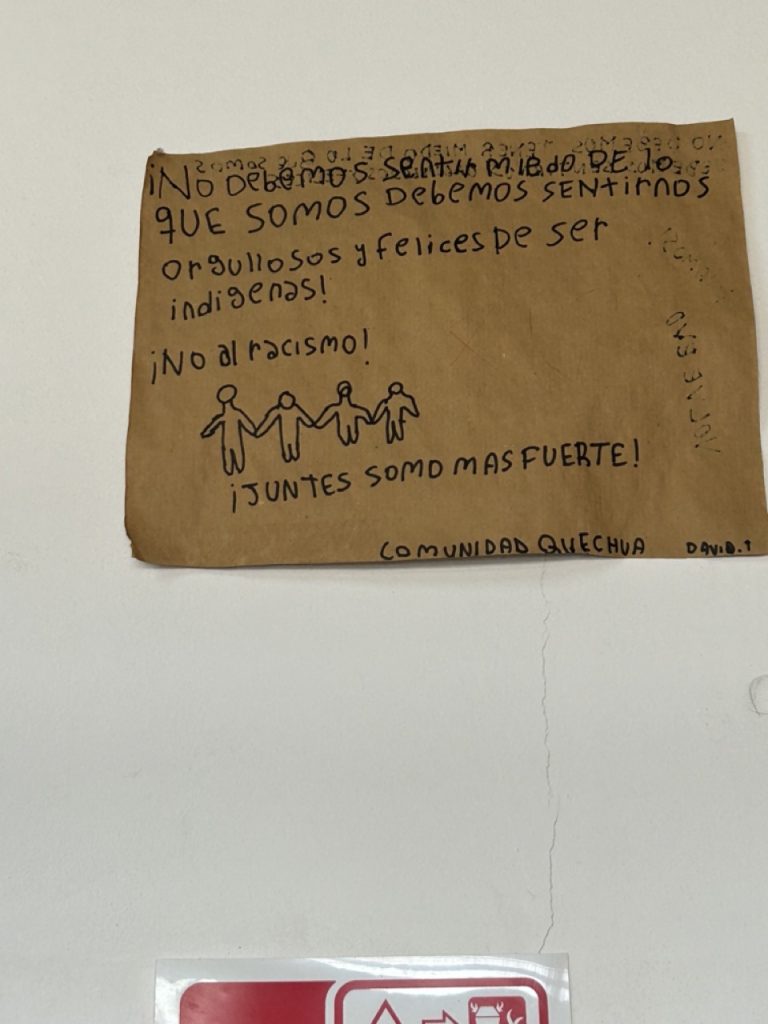 ¡NO DEbEMOS SENTIR MIEDO DE lo
QUE SOMOS DEbEMOS SENTIRNOS
orgullosos y felices De ser
indigenas!
¡No al racismo!
¡JUNTES SOMO MAS FUERTE!
COMUNIDAD QUECHUA DAVID.T